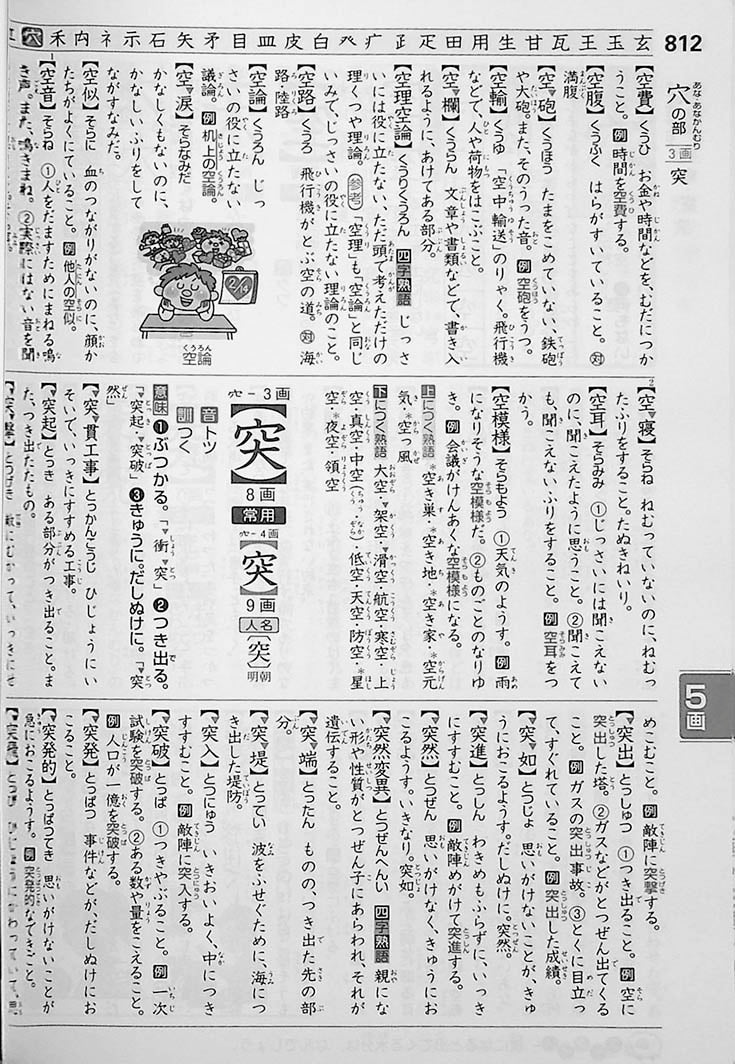 812
玄玉王瓦甘生用田疋疒癶白皮皿目矛矢石示ネ禸禾穴
穴の部 3画 突
あな・あなかんむり
5画
【空費】くうひ お金や時間などを、むだにつか
うこと。例時間を空費する。
【空腹】くうふく はらがすいていること。対
満腹
【空砲】くうほう たまをこめていない、鉄砲
や大砲。また、そのうった音。例空砲をうつ。
【空輸】くうゆ 「空中輸送」のりゃく。飛行機
などで、人や荷物をはこぶこと。
【空欄】くうらん 文章や書類などで、書き入
れるように、あけてある部分。
【空理空論】くうりくうろん 四字熟語 じっさ
いには役に立たない、ただ頭で考えただけの
理くつや理論。参考「空理」も「空論」と同じ
いみで、じっさいの役に立たない理論のこと。
【空路】くうろ 飛行機がとぶ空の道。対海
路 陸路
【空論】くうろん じっ
さいの役に立たない
議論。例机上の空論。
【空涙】そらなみだ
かなしくもないのに、
かなしいふりをして
ながすなみだ。
【空似】そらに 血のつながりがないのに、顔か
たちがよくにていること。例他人の空似。
【空音】そらね ①人をだますためにまねる鳴
き声。また、鳴きまね。②実際にはない音を聞
2/14
空論
くうろん
【空寝】そらね ねむっていないのに、ねむっ
たふりをすること。たぬきねいり。
【空耳】そらみみ ①じっさいには聞こえない
のに、聞こえたように思うこと。②聞こえて
も、聞こえないふりをすること。例空耳をつ
かう。
【空模様】そらもよう ①天気のようす。例雨
になりそうな空模様だ。②ものごとのなりゆ
き。例会議がけんあくな空模様になる。
上につく熟語 *空き巣・*空き地・*空き家・*空元
気・*空っ風
下につく熟語 大空・架空・滑空・航空・寒空・上
空・真空・中空(ちゅうくう・なかぞら)・低空・天空・防空・*星
空・*夜空・領空
穴-3画
【突】8画 常用
穴-4画
【突】9画 人名
〔突〕明朝
音 トツ
訓 つく
意味 ❶ぶつかる。「衝突」 ❷つき出る。
「突起・突破」 ❸きゅうに。だしぬけに。「突
然」
【突貫工事】とっかんこうじ ひじょうにい
そいで、いっきにすすめる工事。
【突起】とっき ある部分がつき出ること。ま
た、つき出たもの。
【突撃】とつげき 敵にむかって、いっきにせ
めこむこと。例敵陣に突撃する。
【突出】とっしゅつ ①つき出ること。例空に
突出した塔。②ガスなどがとつぜん出てくる
こと。例ガスの突出事故。③とくに目立っ
て、すぐれていること。例突出した成績。
【突如】とつじょ 思いがけないことが、きゅ
うにおこるようす。だしぬけに。突然。
【突進】とっしん わきめもふらずに、いっき
にすすむこと。例敵陣めがけて突進する。
【突然】とつぜん 思いがけなく、きゅうにお
こるようす。いきなり。突如。
【突然変異】とつぜんへんい 四字熟語 親にな
い形や性質がとつぜん子にあらわれ、それが
遺伝すること。
【突端】とったん ものの、つき出た先の部
分。
【突堤】とってい 波をふせぐために、海につ
き出した堤防。
【突入】とつにゅう いきおいよく、中につき
すすむこと。例敵陣に突入する。
【突破】とっぱ ①つきやぶること。例一次
試験を突破する。②ある数や量をこえること。
例人口が一億を突破する。
【突発】とっぱつ 事件などが、だしぬけにお
こること。
【突発的】とっぱつてき 思いがけないことが
急におこるようす。例突発的なできごと。